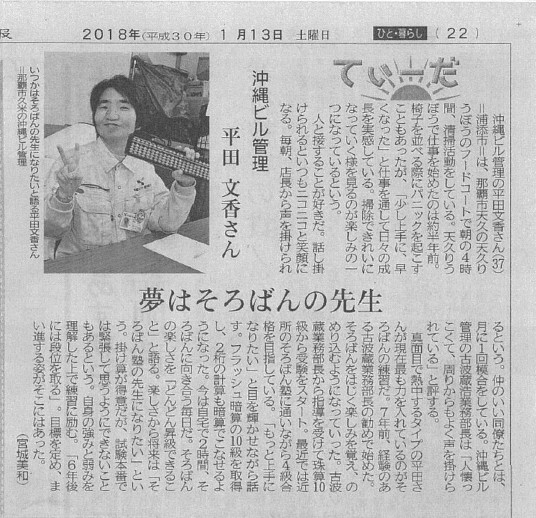 2018年(平成30年) 1月13日 土曜日 ひと・暮らし (22)
てぃーだ
沖縄ビル管理
平田 文香さん
沖縄ビル管理の平田文香さん(37)
＝浦添市＝は、那覇市天久の天久り
うぼうのフードコートで朝の4時
間、清掃活動をしている。天久りう
ぼうで仕事を始めたのは約半年前。
椅子を並べる際にパニックを起こす
こともあったが、「少し上手に、早
くなった」と仕事を通して日々の成
長を実感している。掃除できれいに
なっていく様を見るのが楽しみの一
つになっているという。
人と接することが好きだ。話し掛
けられるといつもニコニコと笑顔に
なる。毎朝、店長から声を掛けられ
いつかはそろばんの先生になりたいと語る平田文香さん
＝那覇市久米の沖縄ビル管理
夢はそろばんの先生
るという。仲のいい同僚たちとは、
月に1回模合をしている。沖縄ビル
管理の古波蔵浩業務部長は「人懐っ
こくて、周りからもよく声を掛けら
れている」と評する。
真面目で熱中するタイプの平田さ
んが現在最も力を入れているのがそ
ろばんの練習だ。7年前、経験のあ
る古波蔵業務部長の勧めで始めた。
そろばんをはじく楽しみを覚え、の
めり込むようになっていった。古波
蔵業務部長から指導を受けて珠算10
級から受験をスタート。最近では近
所のそろばん塾に通いながら4級合
格を目指している。「もっと上手に
なりたい」と目を輝かせながら話
す。フラッシュ暗算の10級を取得
し、2桁の計算も暗算でこなせるよ
うになった。今は自宅で2時間、そ
ろばんに向き合う毎日だ。そろばん
の楽しさを「どんどん昇級できるこ
と」と語る。楽しさから将来は「そ
ろばん塾の先生になりたい」とい
う。掛け算が得意だが、試験本番で
は緊張して思うようにできないこと
もあるという。自身の強みと弱みを
理解した上で練習に励む。「6年後
には段位を取る」。目標を定め、ま
い進する姿がそこにはあった。
（宮城美和）